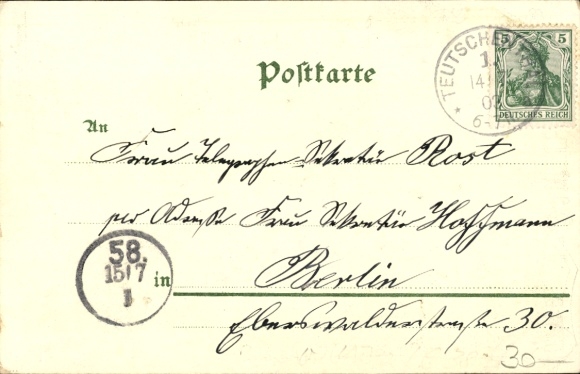 Postkarte
TEUTSCHEN
1.
14
6-7
5 5
DEUTSCHES REICH
An
Frau Telegraphen-Sekretär Rost
per Adresse Frau Sekretär Hoffmann
58.
15/7
1
in Berlin
Eberswalderstrasse 30.
30